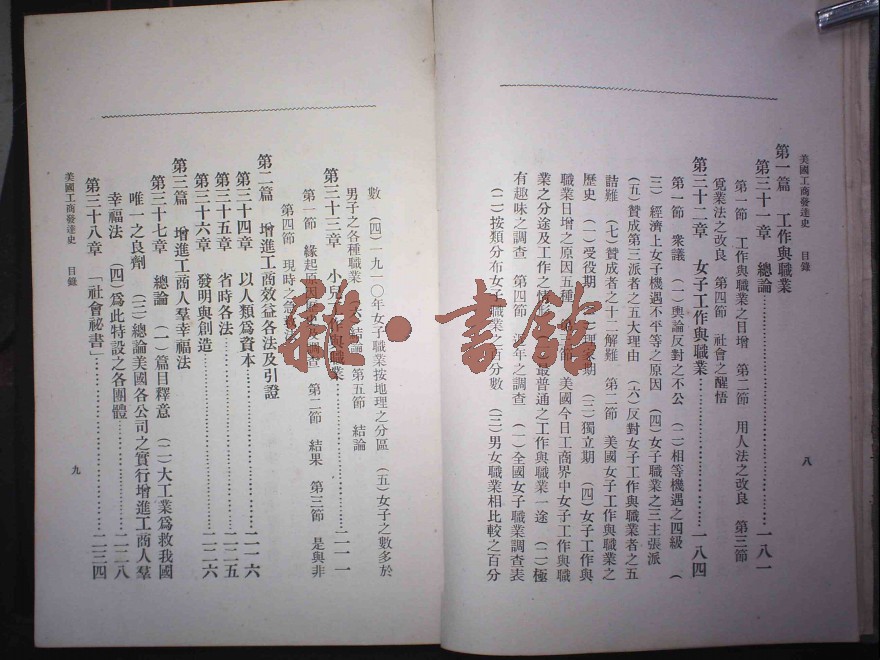 美國工商發達史 目錄
第一篇 工作與職業
第三十一章 總論……一八一
第一節 工作與職業之日增 第二節 用人法之改良 第三節
覓業法之改良 第四節 社會之醒悟
第三十二章 女子工作與職業……一八四
第一節 衆議 (一)輿論反對之不公 (二)相等機遇之四級 (
三)經濟上女子機遇不平等之原因 (四)女子職業之三主張派
(五)贊成第三派者之五大理由 (六)反對女子工作與職業者之五
詰難 (七)贊成者之十二解難 第二節 美國女子工作與職業之
歷史 (一)受役期 (二)理家期 (三)獨立期 (四)女子工作與
職業日增之原因五種 美國今日工商界中女子工作與職
業之分途及工作之 最普通之工作與職業一途 (二)極
有趣味之調查 第四節 近年之調查 (一)全國女子職業調查表
(二)按類分布女子職業之百分數 (三)男女職業相比較之百分
八
數 (四)一九一〇年女子職業按地理之分區 (五)女子之數多於
男子之各種職業 (六)結論 第五節 結論
第三十三章 小兒工作與職業……二一一
第一節 緣起原因 及調查 第二節 結果 第三節 是與非
第四節 現時之急
第二篇 增進工商效益各法及引證
第三十四章 以人類爲資本……二一六
第三十五章 省時各法……二二五
第三十六章 發明與創造……二二六
第三篇 增進工商人羣幸福法
第三十七章 總論 (一)篇目釋意 (二)大工業爲救我國
唯一之良劑 (三)總論美國各公司之實行增進工商人羣
幸福法 (四)爲此特設之各團體……二二八
第三十八章 「社會祕書」……二三四
美國工商發達史 目錄
九
雜·書館